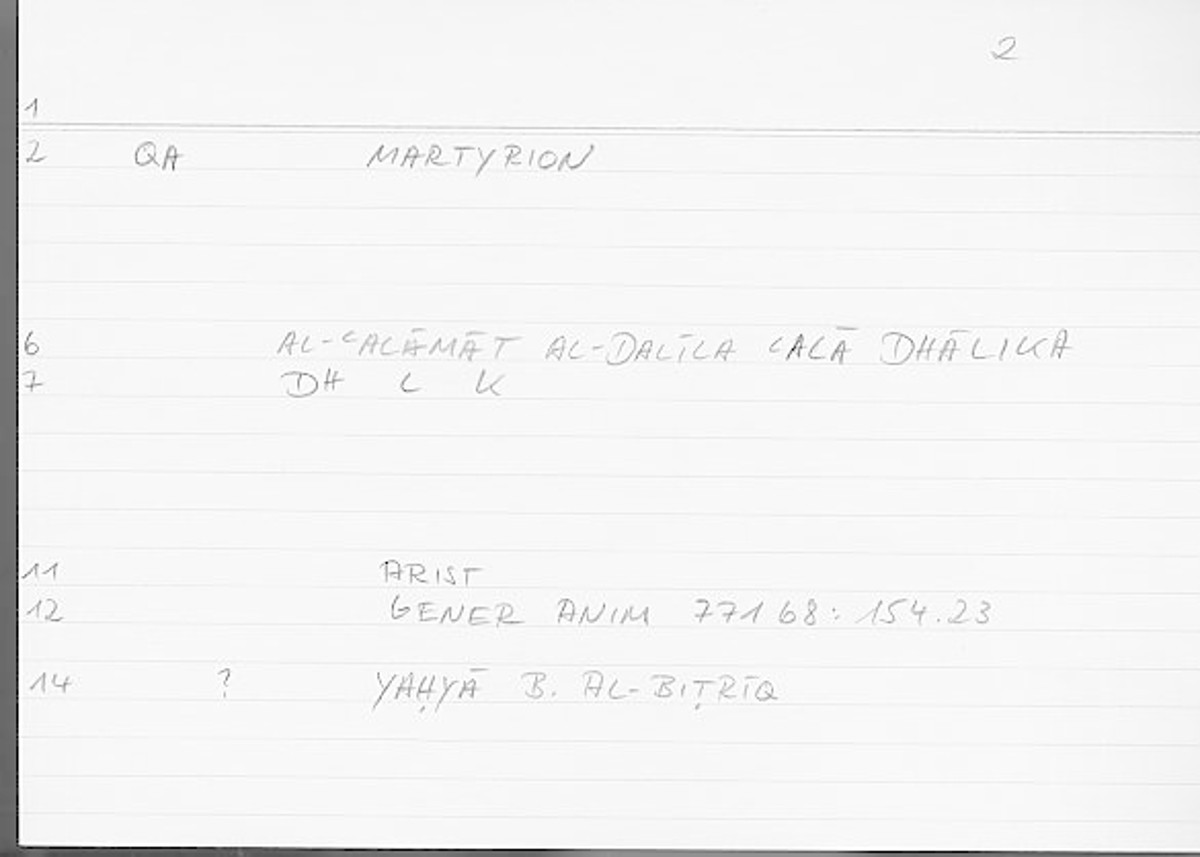 2
1
2 QA MARTYRION
6 AL-ʿALĀMĀT AL-DALĪLA ʿALĀ DHĀLIKA
7 DH L K
11 ARIST
12 GENER ANIM 771 b8: 154.23
14 ? YAḤYĀ B. AL-BIṬRĪQ